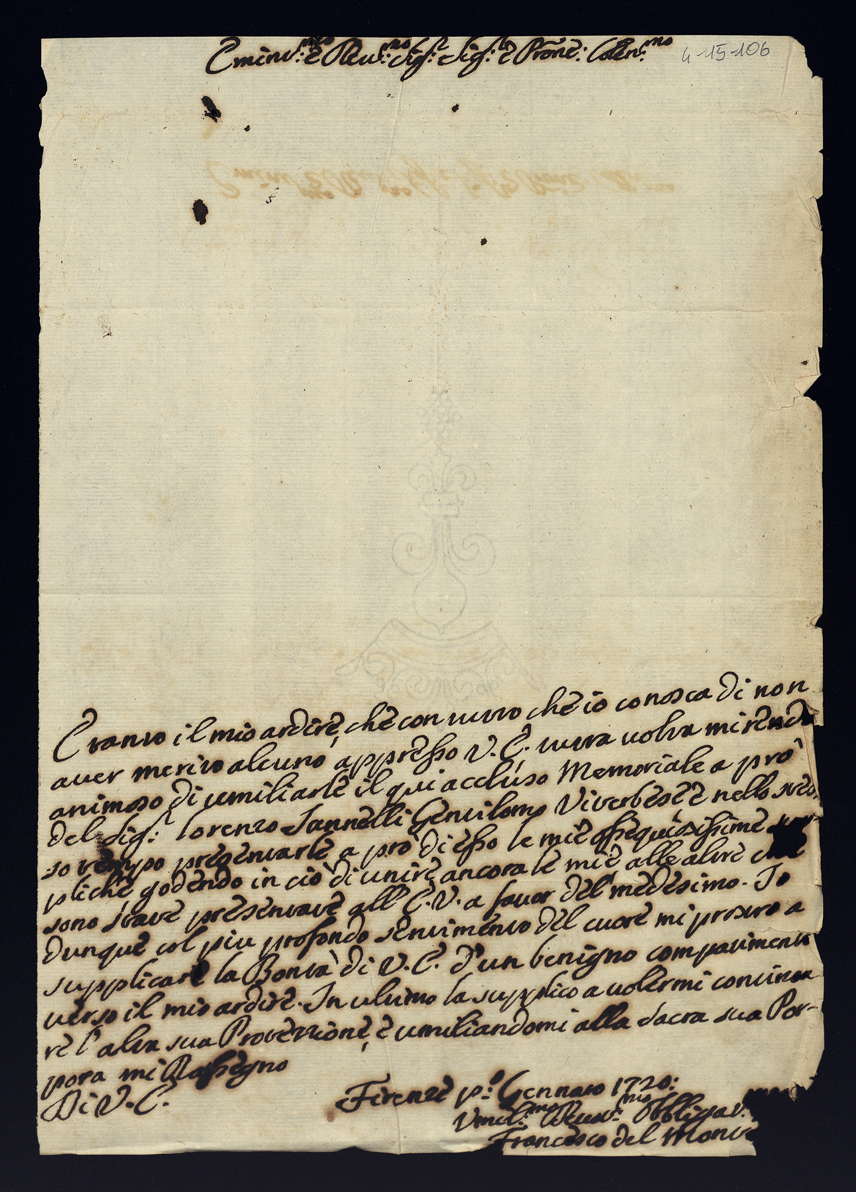 Emin.mo e Reu.mo Sig.r Sig.r e Prone: Colen.mo
4-15-106
E tanto il mio ardire, che con tutto che io conosca di non
aver merito alcuno appresso V. E. tutta volta mi rende
animoso di umiliarle il qui accluso Memoriale a prò
del Sig.r Lorenzo Jannelli Gentilomo Viterbese e nello stes-
so tempo presentarle a prò di esso le mie ossequiosissime
pliche godendo in ciò di unire ancora le mie alle altre che
sono state presentate all E. V. a favor del medesimo. Io
dunque col piu profondo sentimento del cuore mi prostro a
supplicare la Bontà di V. E. d'un benigno compatimento
verso il mio ardire. In ultimo la supplico a volermi continua
re l'alta sua Protezzione, e umiliandomi alla sacra sua Por-
pora mi Rassegno
Di V. E.
Firenze p.o Gennaio 1720:
Umil.mo Reu.mo Obbligat.
Francesco del Monte